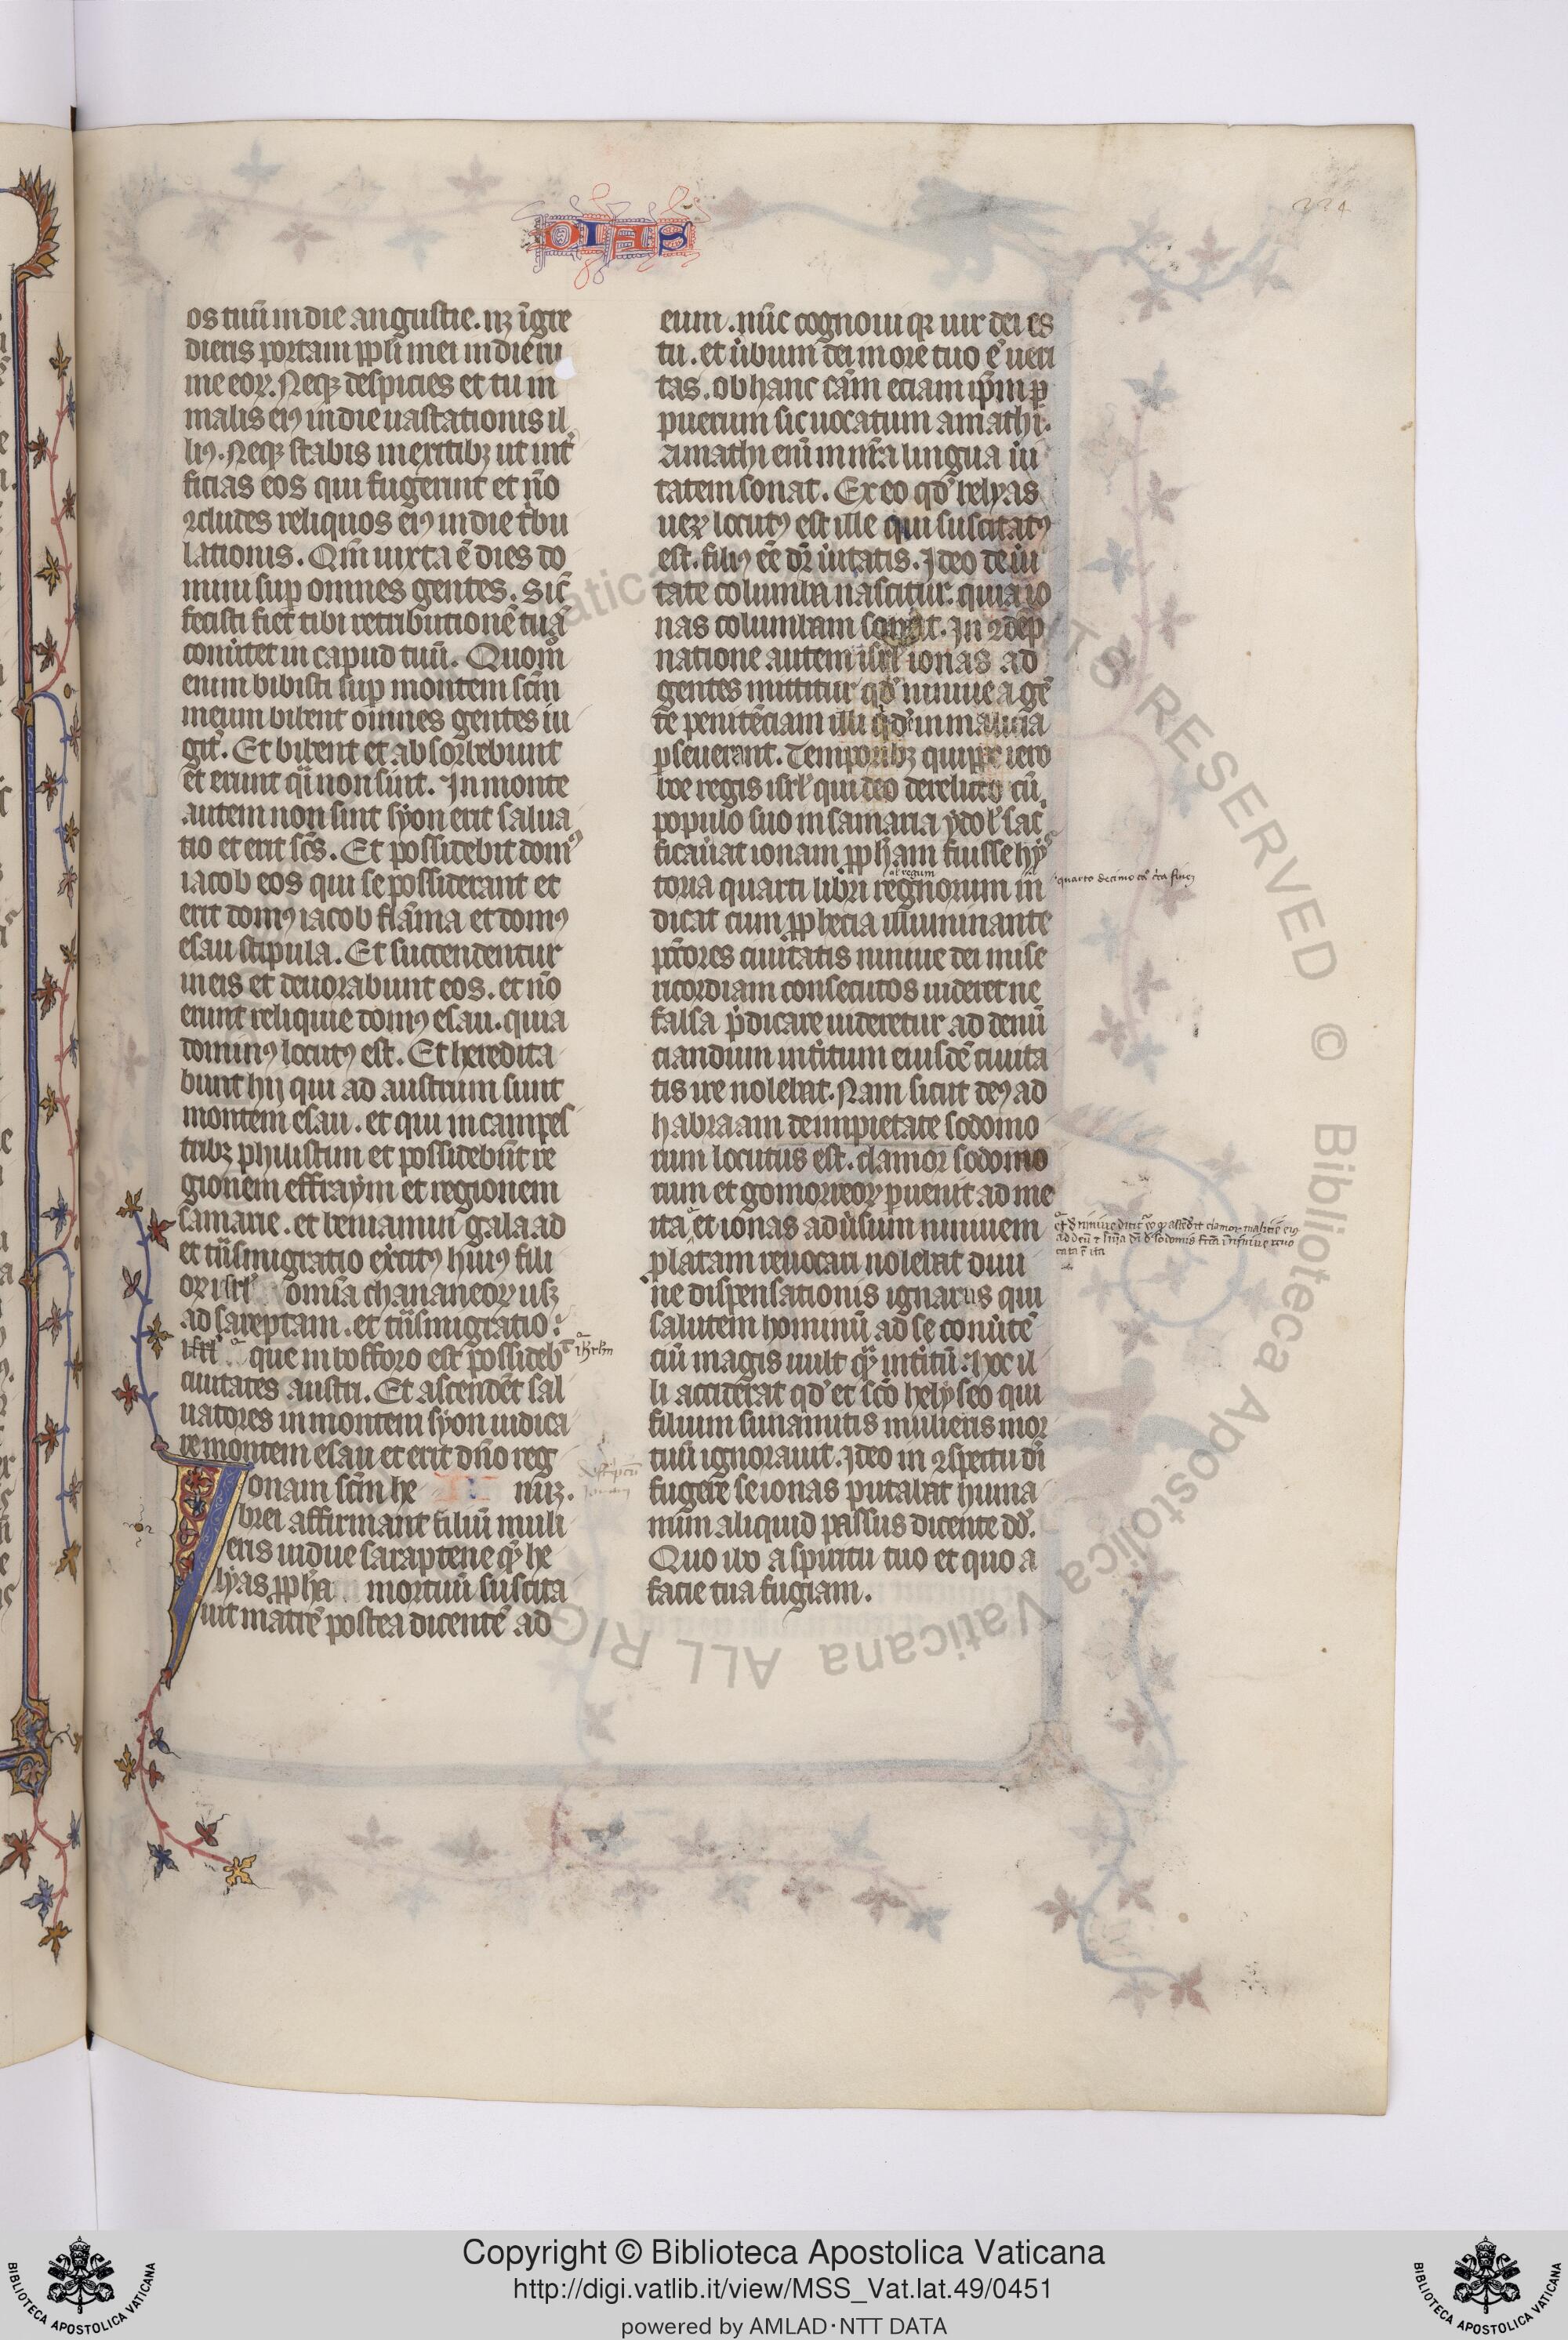 DIAS
224
os tuū in die angustie. nꝫ īgre
dieris portam ppl̄i mei in die rui
me eoꝝ. Neqꝫ despicies et tu in
malis eiꝰ in die uastationis il
liꝰ. Neqꝫ stabis in exitibꝫ ut int̄
ficias eos qui fugerint et nō
ꝯcludes reliquos eiꝰ in die tͥbu
lationis. Qm̄ iuxta ē dies do
mini suꝑ omnes gentes. Sic̄
fecisti fiet tibi retributionē tuā
conūtet in capud tuū. Quom̊
enim bibisti suꝑ montem sc̄m
meum bibent omnes gentes iu
git̾. Et bibent et absorbebunt
et erunt qͣi non sint. In monte
autem non sint syon erit salua
tio et erit sc̄s. Et possidebit domꝰ
iacob eos qui se possiderant et
erit domꝰ iacob flāma et domꝰ
esau stipula. Et succendentur
in eis et deuorabunt eos. et nō
erunt reliquie domꝰ esau. quia
dominꝰ locutꝰ est. Et heredita
bunt hij qui ad austrum sunt
montem esau. et qui in campes
tribꝫ philistim et possidebūt re
gionem effraym et regionem
samarie. et beniamin galaad
et tn̄smigratio exͥcitꝰ huiꝰ fili
oꝝ isrl̄ omīa chananeoꝝ usꝫ
ad sareptam. et tn̄smigratio
isrl̄ que in bosforo est possideb̄
ihrl̄m
ciuitates austri. Et ascendēt sal
uatores in montem syon iudica
re montem esau et erit dn̄o reg
num.
Ionam sc̄m he
brei affirmant filiū muli
eris uidue saraptene qm̄ he
lyas ppha mortuū suscita
uit matrē postea dicentē ad
eum. nūc cognoui qꝛ uir dei es
tu. et ūbum dei in ore tuo ē ueri
tas. ob hanc cām eciam ip̄m p
puerum sic uocatum amathi.
amathi enī in nr̄a lingua ūi
tatem sonat. Ex eo qd̾ helyas
ueꝝ locutꝰ est ille qui suscitatꝰ
est. filiꝰ eē dr̄ ūitatis. Ideo de ūi
tate columba nascitur. quia io
nas columbam sonat. In ꝯdēp
natione autem isrl̄ ionas ad
gentes mittitur qd̾ niniue agē
te penitēciam illi qd̾ in malicia
ꝑseuerant. Temporibꝫ quippe iero
boe regis isrl̄ qui deo derelicto cū
populo suo in samaria ydol̾ sac̄
ficaūat ionam ppham fuisse hys
toria quarti libri regnorum in
al̾ regum
quarto decimo ca° c̄ca finē
dicat cum pphecia illuminante
pctōres ciuitatis niniue dei mise
ricordiam consecutos uideret ne
falsa p̄dicare uideretur ad denū
ciandum intͥtum eiusdē ciuita
tis ire nolebat. Nam sicut deꝰ ad
habraam de impietate sodomo
rum locutus est. clamor sodomo
rum et gomorreoꝝ ꝑuenit ad me
ita et ionas adūsum niniuem
platam reuocari nolebat diui
ne dispensationis ignarus qui
salutem hominū ad se conūtē
ciū magis uult qͣ intͥtū. hoc il
li acciderat qd̾ et sc̄o helyseo qui
filium sunamitis mulieris mor
tuū ignorauit. Ideo in ꝯspectu di
fugere se ionas putabat huma
num aliquid passus dicente dd̾.
Quo ibo a spiritu tuo et quo a
facie tua fugiam.
Copyright © Biblioteca Apostolica Vaticana
http://digi.vatlib.it/view/MSS_Vat.lat.49/0451
powered by AMLAD·NTT DATA
BIBLIOTECA APOSTOLICA VATICANA
BIBLIOTECA APOSTOLICA VATICANA
© Biblioteca Apostolica Vaticana ALL RIGHTS RESERVED